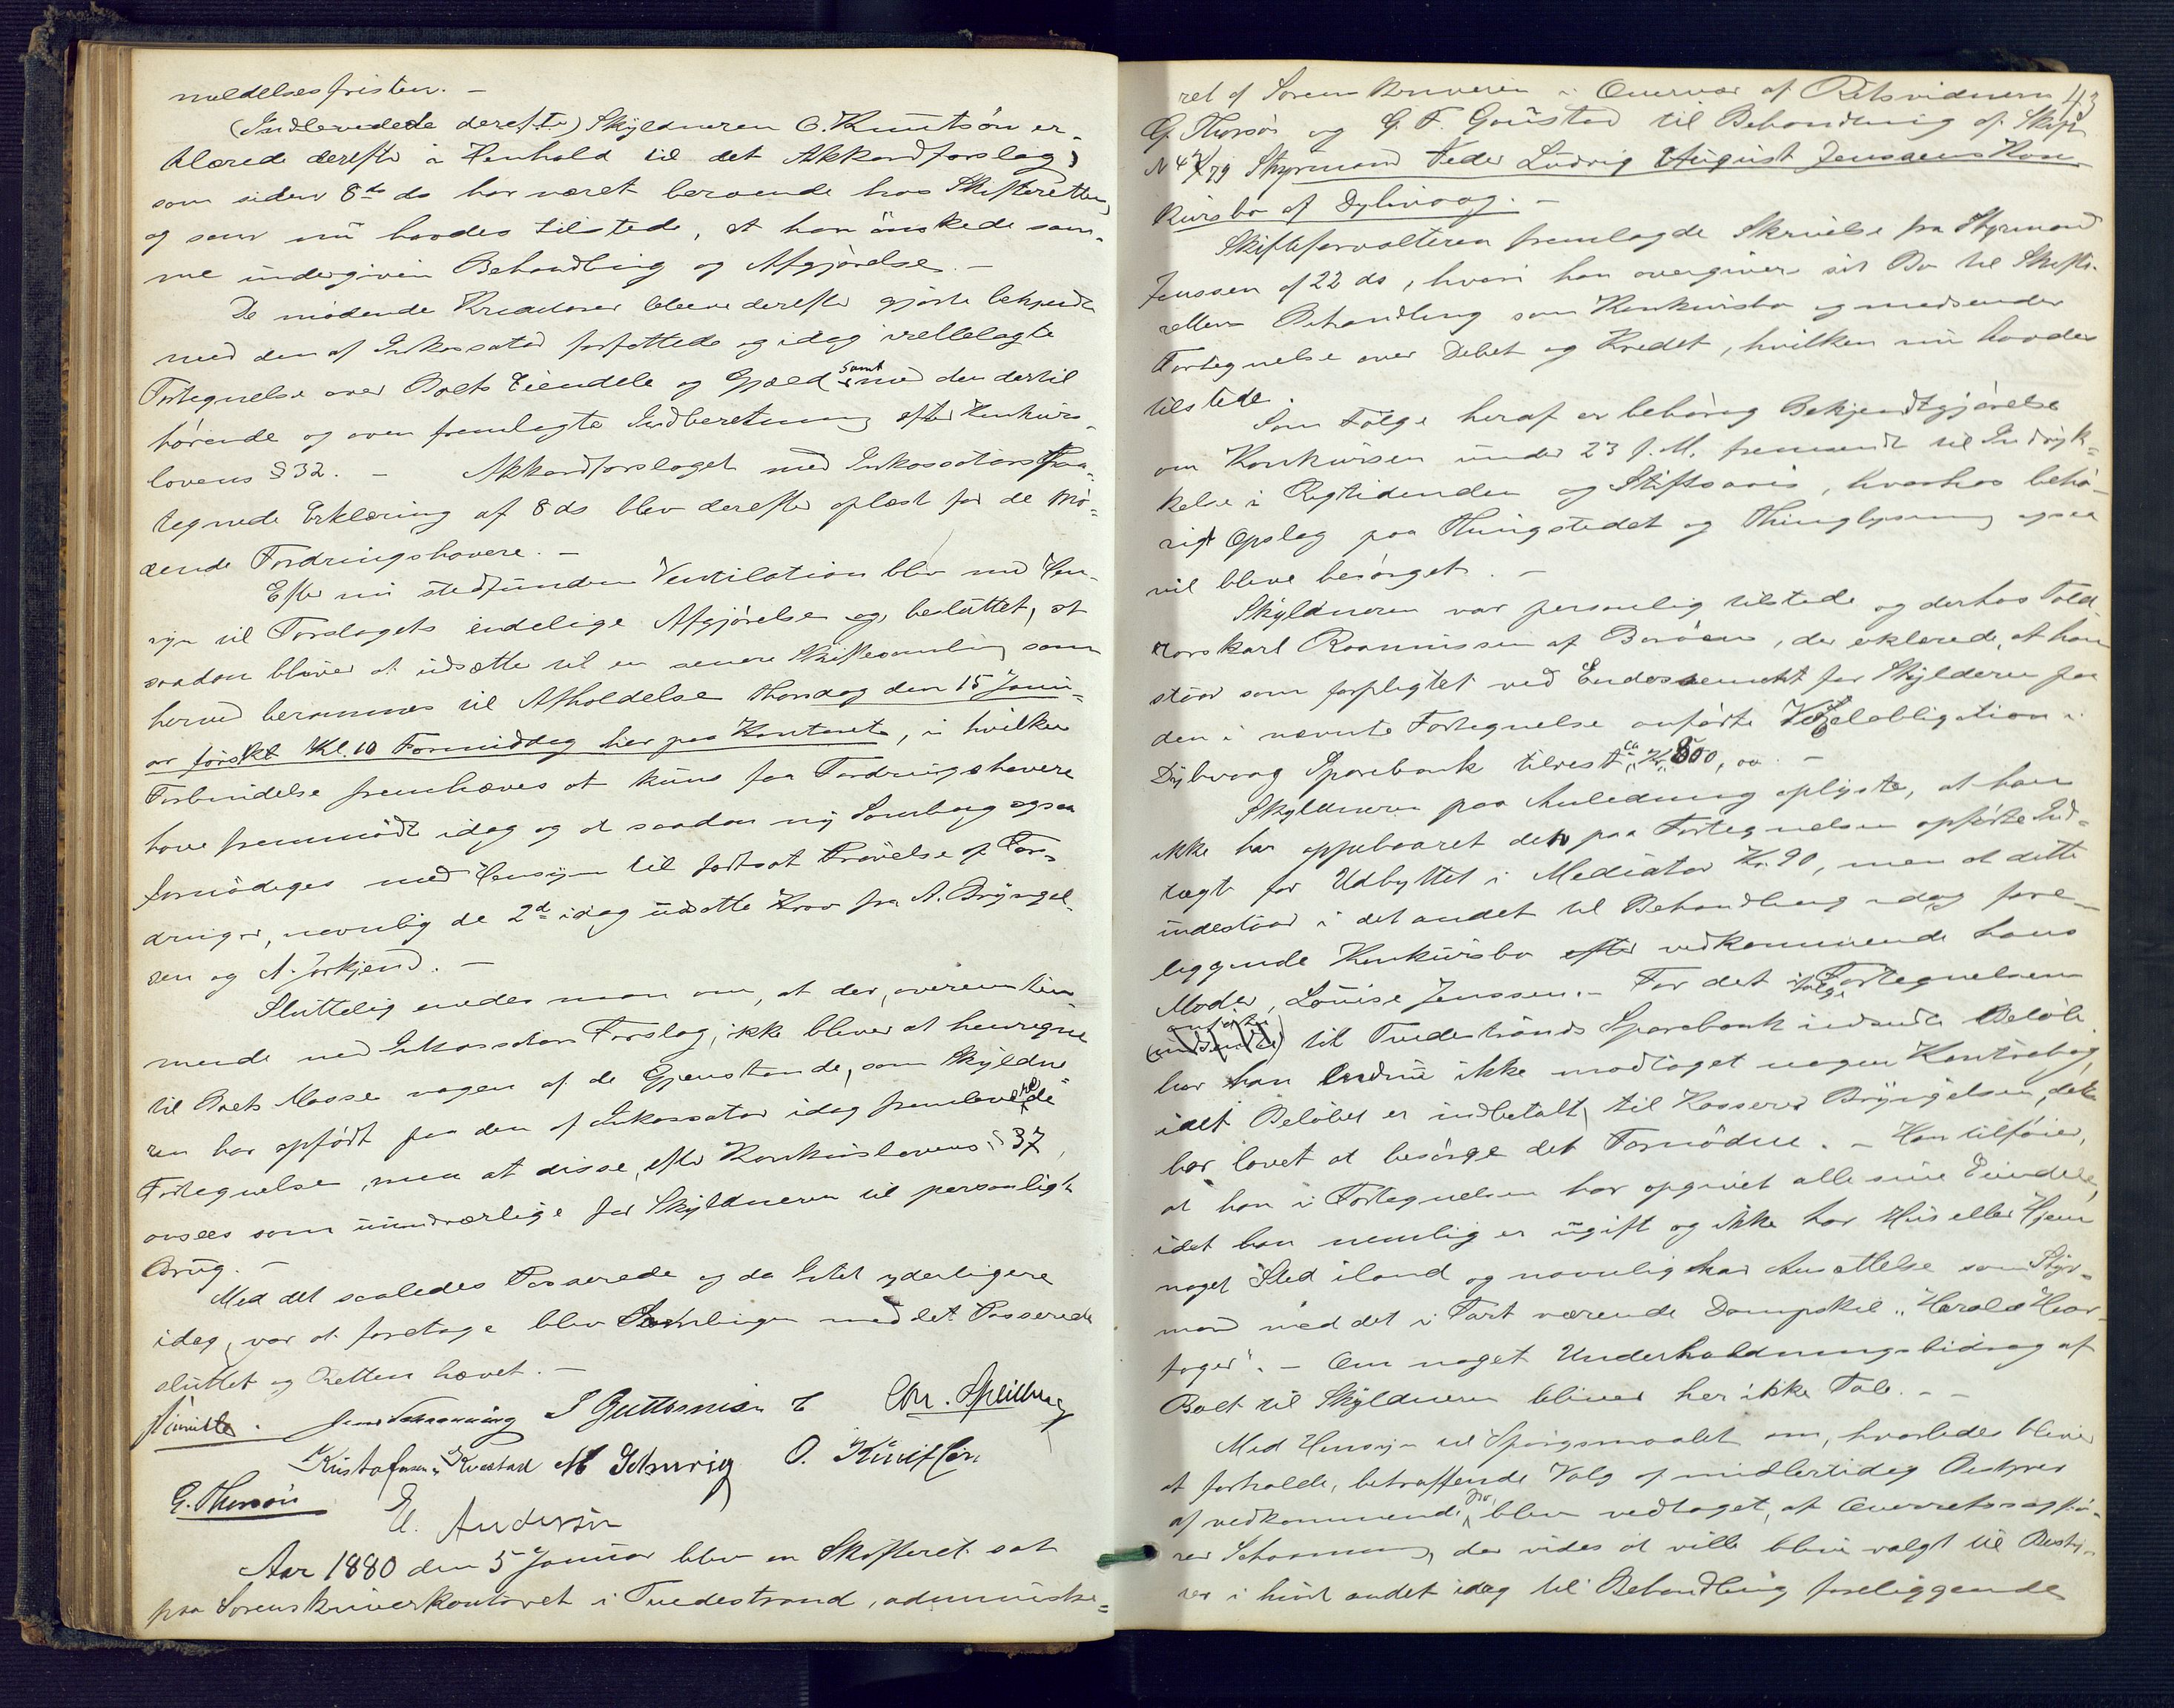 meldelsesfristen. —
(Indleverede derefter) Skyldneren O. Knutsøn er-
klærede derefter i Henhold til det Akkordforslag,
som siden 8de ds har været beroende hos Skifteretten,
og som nu havdes tilstede, at han ønskede sam-
me undergiven Behandling og Afgjørelse. —
De mødende Kreditorer bleve derefter gjorte bekjendt
med den af Inkassator forfattede og idag irettelagte
Fortegnelse over Boets Eiendele og Gjæld samt med den dertil
hørende og oven fremlagte Indberetning efter Konkurs-
lovens § 32. — Akkordforslaget med Inkassators paa-
tegnede Erklæring af 8 ds blev derefter oplæst for de mø-
dende Fordringshavere. —
Efter nu stedfunden Ventilation blev med Hen-
syn til Forslagets endelige Afgjørelse besluttet, at
saadan bliver at udsætte til en senere Skiftesamling som
herved berammes til Afholdelse Thorsdag den 15 Janu-
ar først Kl. 10 Formiddag her paa Kontoret, i hvilken
Forbindelse fremhæves at kuns faa Fordringshavere
have fremmødt idag og at saadan ny Samling ogsaa
fornødiges med Hensyn til fortsat Prøvelse af For-
dringer, navnlig de 2de idag udsatte Krav fra A. Bryngel-
sen og A. Jorkjend. —
Sluttelig enedes man om, at der, overensstem-
mende med Inkassators Forslag, ikke bliver at henregne
til Boets Masse nogen af de Gjenstande, som Skyldne-
ren har opført paa den af Inkassator idag fremleverede
Fortegnelse, men at disse, efter Konkurslovens § 37,
ansees som uundværlige for Skyldneren til personligt
Brug. —
Med det saaledes Passerede og da Intet yderligere
idag var at foretage blev Samlingen med det Passerede
sluttet og Retten hævet. —
J Guttormsen Chr.
Kristofersen Kvastad O. Knutson
G. Thorsøn E. Andersen
Aar 1880 den 5 Januar blev en Skifteret sat
paa Sorenskriverkontoret i Tvedestrand, administre-
43
ret af Sorenskriveren i Overvær af Retsvidnerne
G. Thorsøn og G. F. Goustad til Behandling af Skift
N 4 /79 Styrmand Peder Ludvig August Jenssens Kon-
kursbo af Dybvaag. —
Skifteforvalteren fremlagde Skrivelse fra Styrmand
Jenssen af 22 ds, hvori han overgiver sit Bo til Skifte-
rettens Behandling som Konkursbo og medsender
Fortegnelse over Debet og Kredit, hvilken nu havdes
tilstede.
Som Følge heraf er behørig Bekjendtgjørelse
om Konkursen under 23 f. M. fremsendt til Indryk-
kelse i Rigstidenden og Stiftsavis, hvorhos behø-
rigt Opslag paa Thingstedet og Thinglysning ogsaa
vil blive besørget. —
Skyldneren var personlig tilstede og derhos Told-
rorskarl Rasmussen af Borøen, der erklærede, at han
staar som forpligtet ved Endossement for Skyldneren paa
den i nævnte Fortegnelse anførte Vexelobligation i
Dybvaag Sparebank tilrest ca Kr. 800, oo. —
Skyldneren paa Anledning oplyste, at han
ikke har oppebaaret den paa Fortegnelsen opførte Ind-
tægt for Udbyttet i Mediator Kr. 90, men at dette
indestaar i det andet til Behandling idag fore-
liggende Konkursbo efter vedkommende hans
Moder, Louise Jenssen. — For det ifølge Fortegnelsen
til Tvedestrands Sparebank indsendte Beløb
har han endnu ikke modtaget nogen Kontrabog,
idet Beløbet er indbetalt til Kasserer Bryngelsen, der
har lovet at besørge det Fornødne. — Han tilføier,
at han i Fortegnelsen har opgivet alle sine Eiendele,
idet han nemlig er ugift og ikke har Hus eller Hjem
noget Sted iland og navnlig har Ansættelse som Styr-
mand med det i Fart værende Dampskib "Harald Haar-
fager". — Om noget Underholdningsbidrag af
Boet til Skyldneren bliver her ikke Tale. — —
Med Hensyn til Spørgsmaalet om, hvorledes bliver
at forholde, betræffende Valg af midlertidig Bestyrer
af vedkommende blev vedtaget, at Overretssagfø-
rer Schanning, der vides at ville blive valgt til Besty-
rer i hint andet idag til Behandling foreliggende